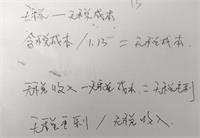 无税 — 无税成本
含税成本 / 1.13 = 无税成本
无税收入 — 无税成本 = 无税毛利
无税毛利 / 无税收入